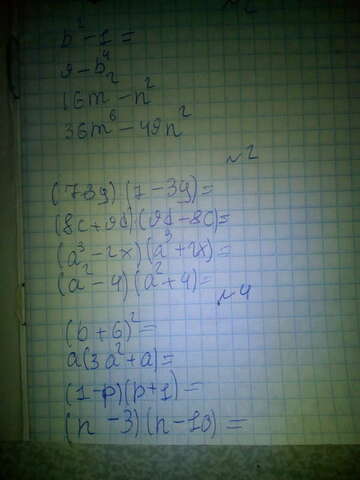 b² - 1 =
9 - b⁴
16m² - n²
36m⁶ - 49n²
№2
(7 3y)(7 - 3y) =
(8c + 9d)(9d - 8c) =
(a³ - 2x)(a³ + 2x) =
(a² - 4)(a² + 4) =
№4
(b + 6)² =
a(3a² + a) =
(1 - p)(p + 1) =
(n - 3)(n - 10) =